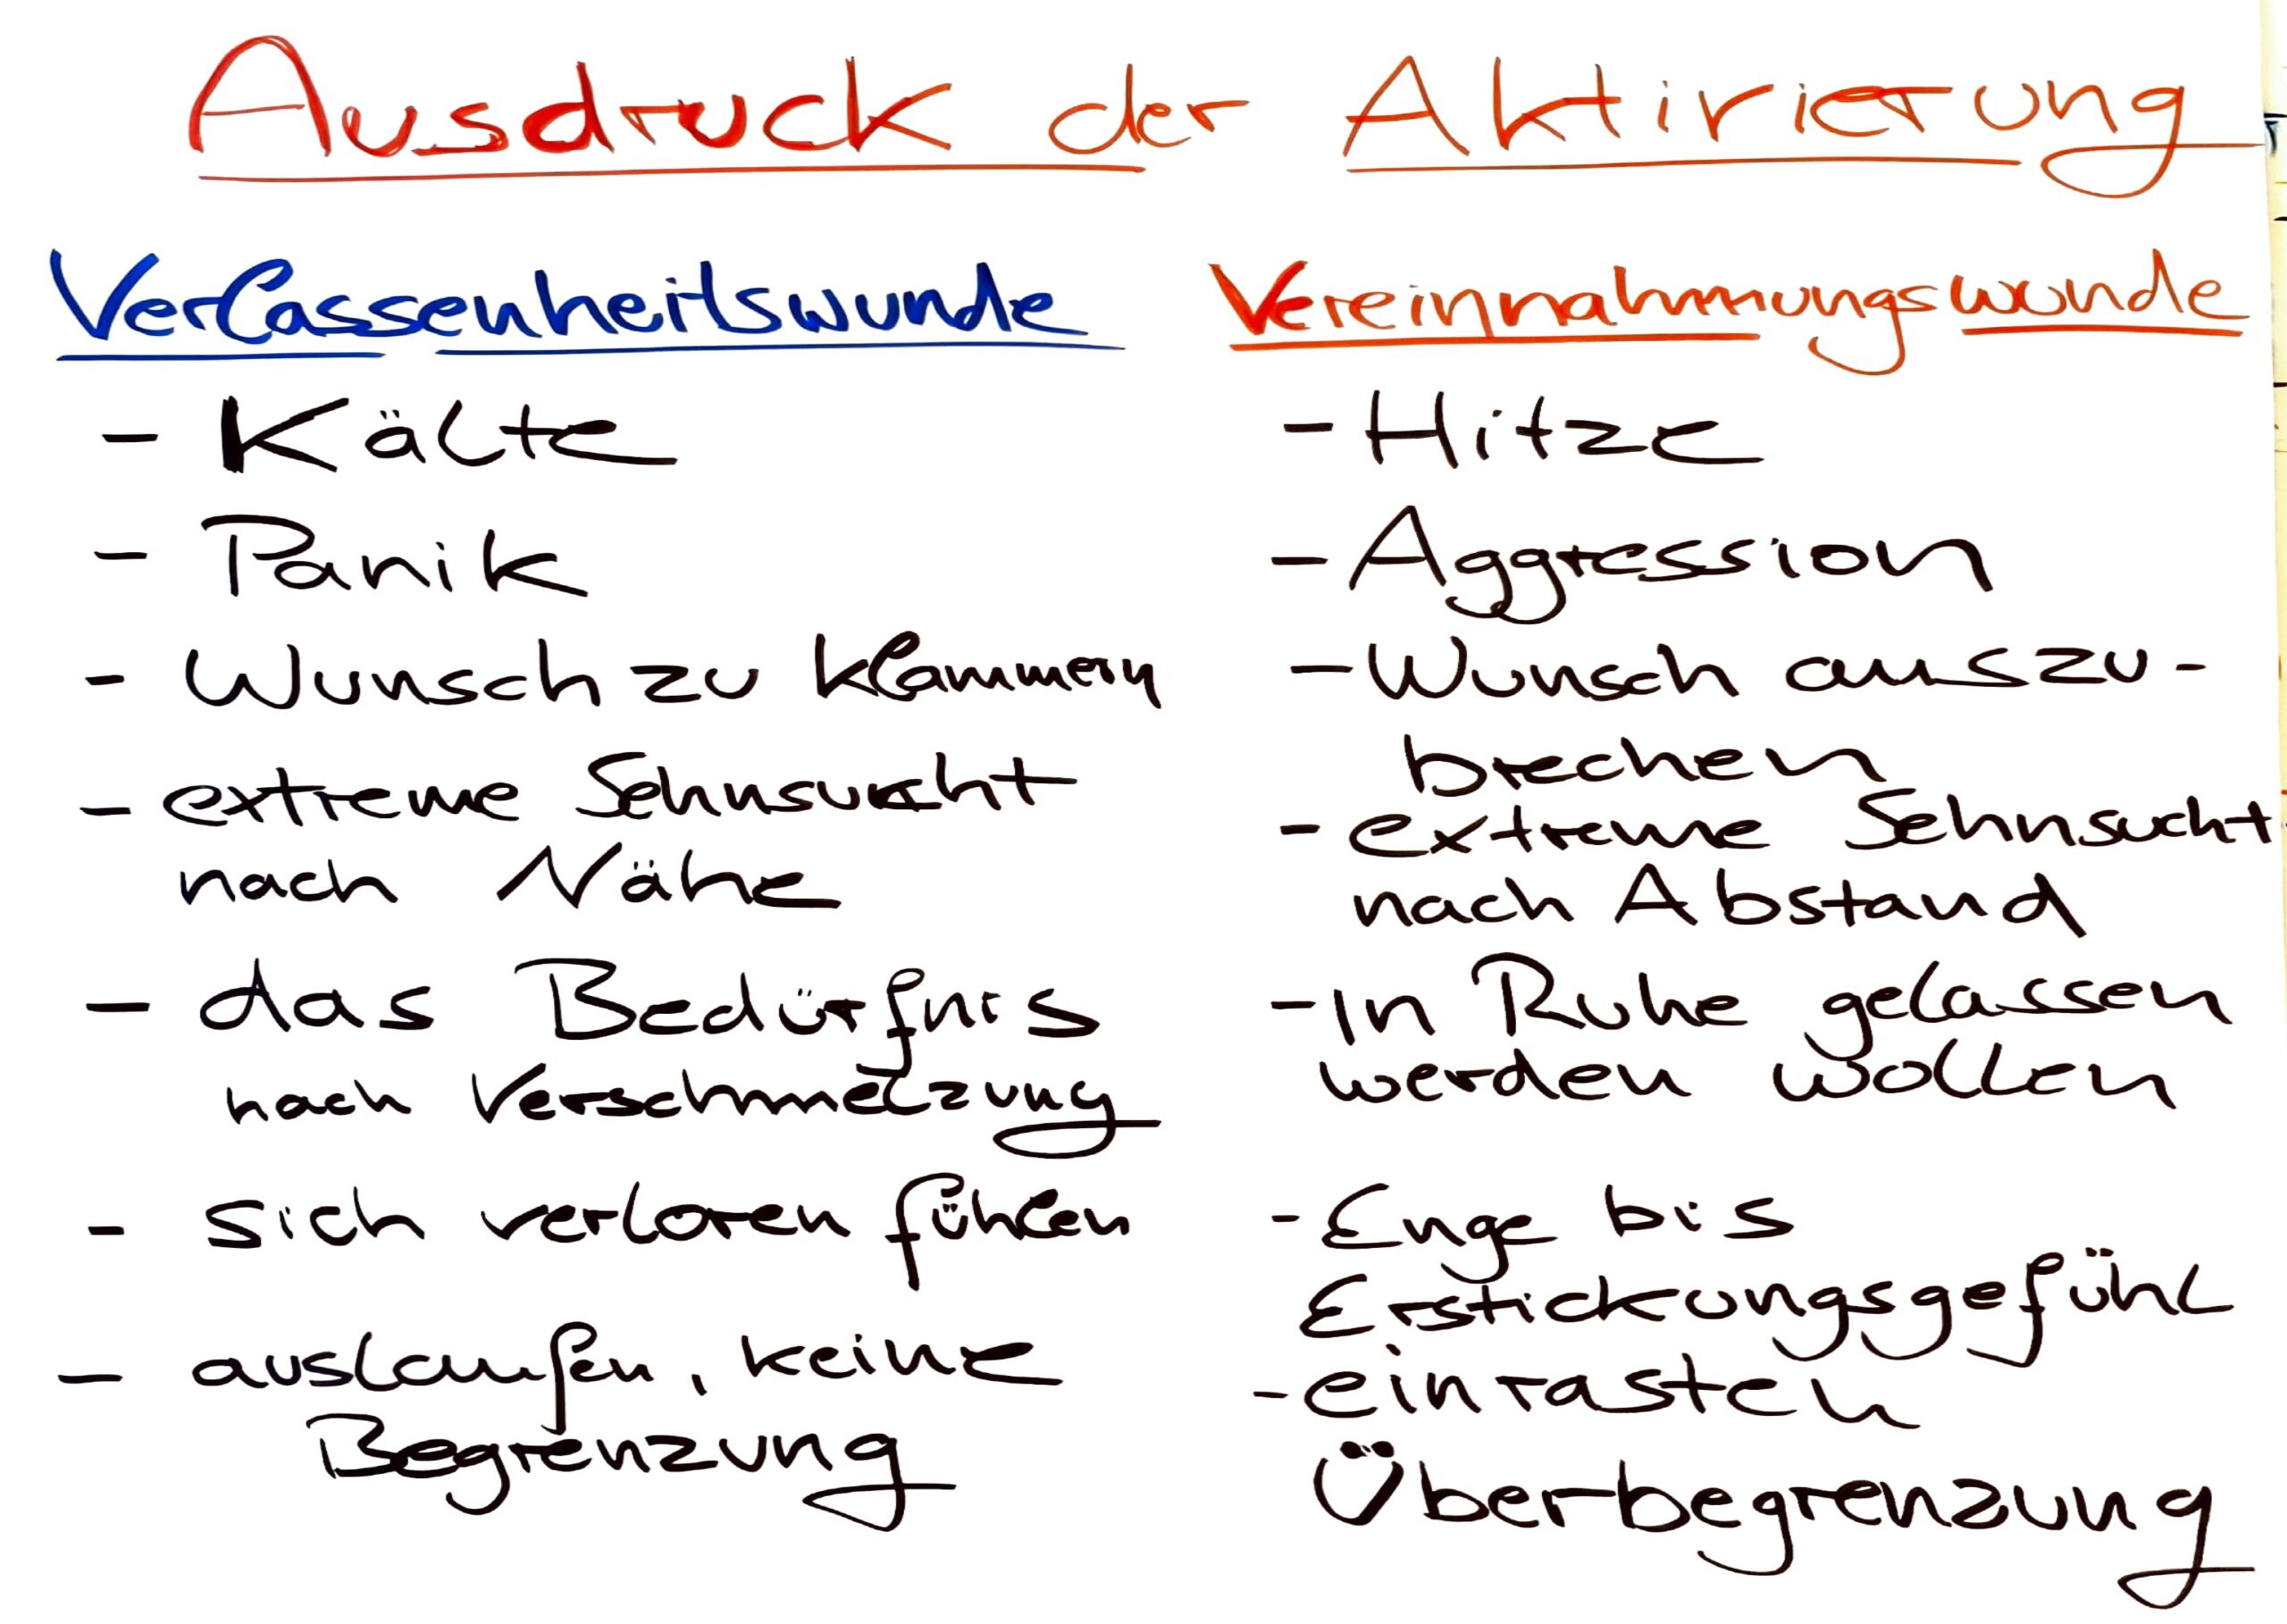 Ausdruck der Aktivierung
Verlassenheitswunde
- Kälte
- Panik
- Wunsch zu klammern
- extreme Sehnsucht
nach Nähe
- das Bedürfnis
nach Verschmelzung
- sich verloren fühlen
- auslaufen, keine
Begrenzung
Vereinnahmungswunde
- Hitze
- Aggression
- Wunsch auszu-
brechen
- extreme Sehnsucht
nach Abstand
- In Ruhe gelassen
werden wollen
- Enge bis
Erstickungsgefühl
- einrasten
Überbegrenzung